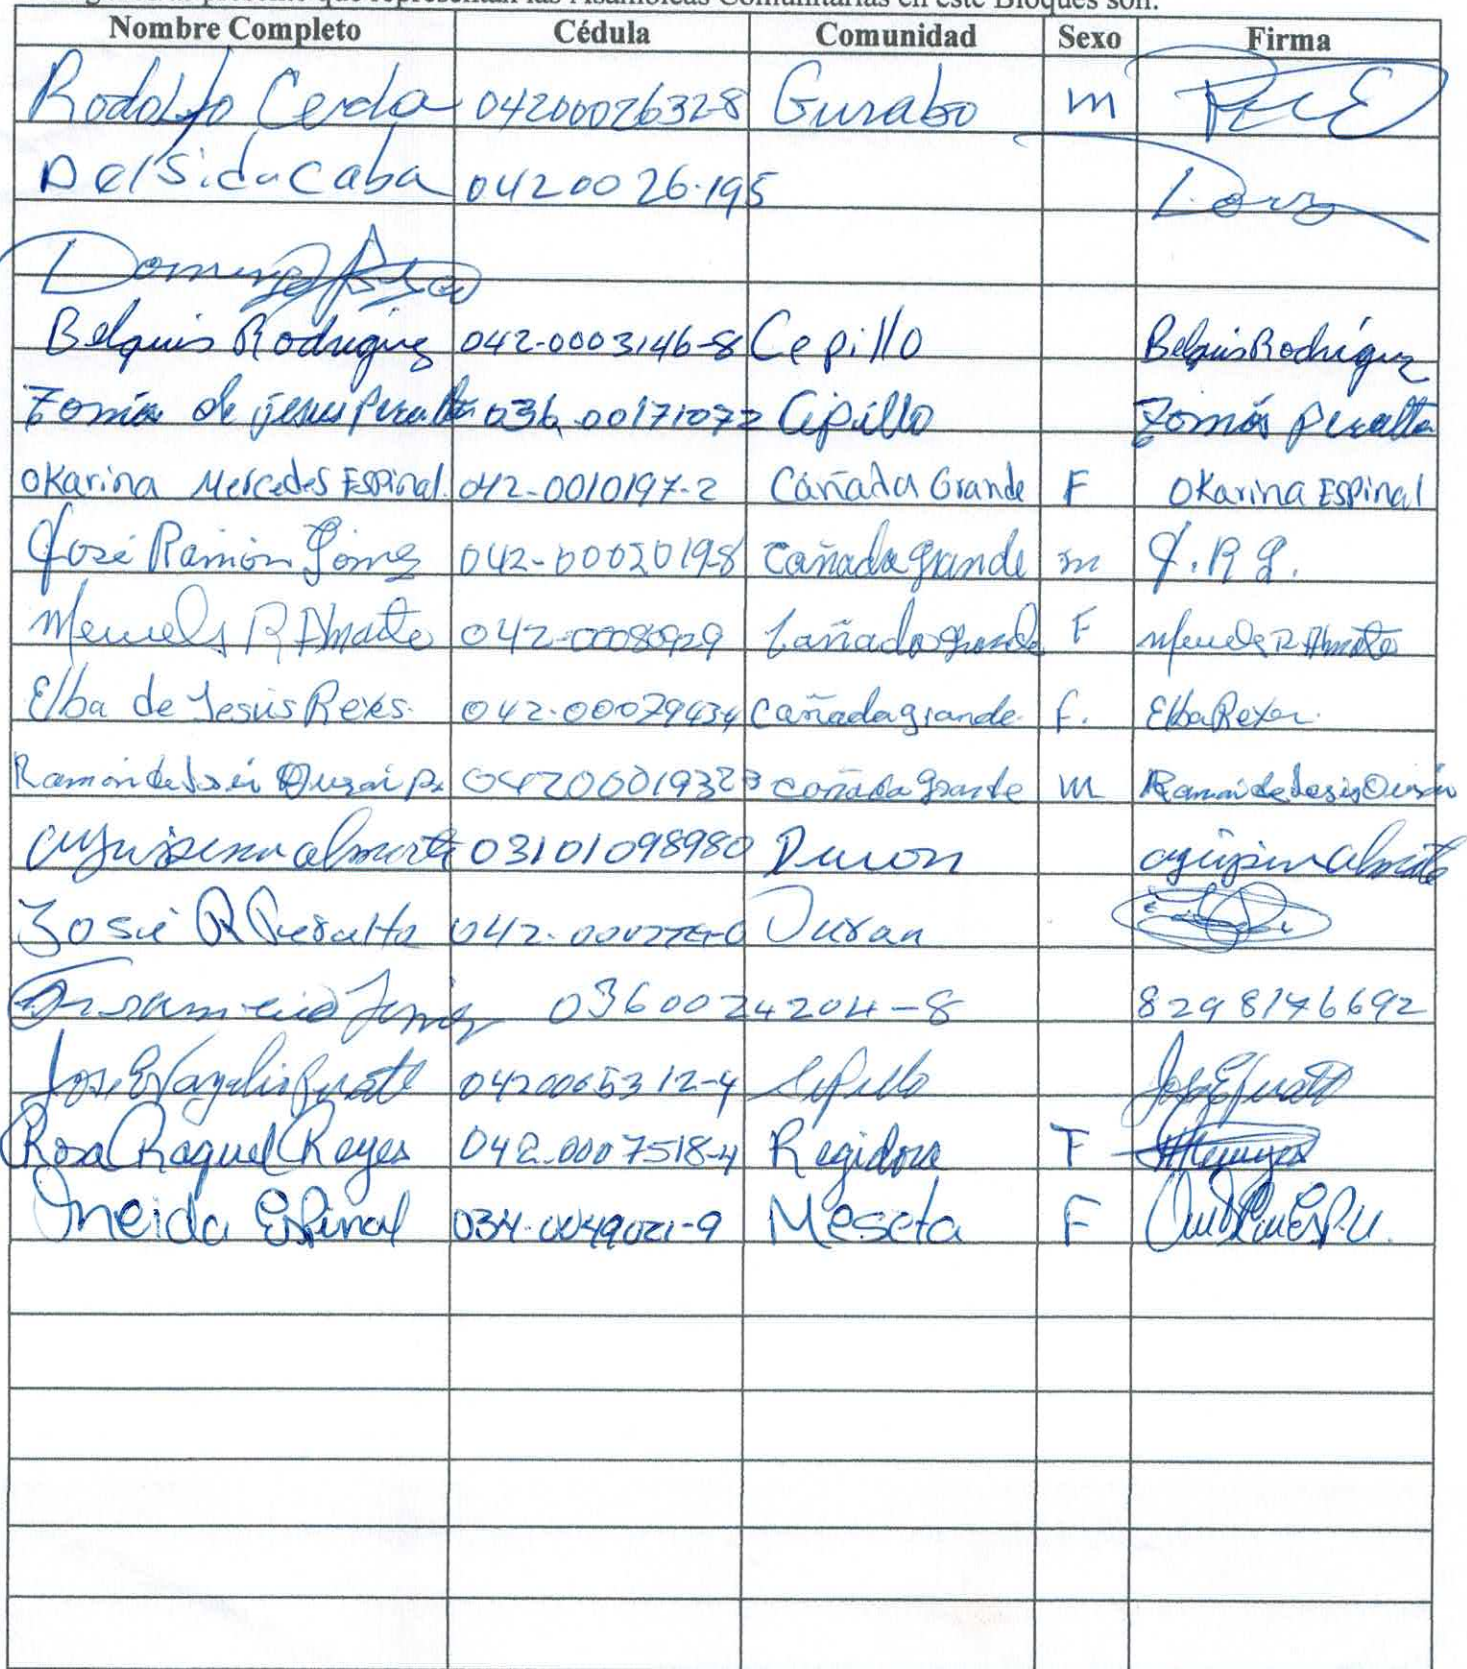 que representan las Asambleas Comunitarias en este Bloques son:
Nombre Completo Cédula Comunidad Sexo Firma
Rodolfo Cerda 04200026328 Gurabo m
Delsida Caba 0420026.195
Domingo
Belquis Rodriguez 042-0003146-8 Cepillo Belquis Rodriguez
Tomás de jesus Peralta 036 00171072 Cipillo Tomás Peralta
Okarina Mercedes Espinal. 042-0010197-2 Cañada Grande F Okarina Espinal
José Ramón Gómez 042-00020198 Cañada grande m J.R.G.
R Almonte 042-00080929 Cañada grande F R Almonte
Elba de Jesús Reyes. 042-00079434 Cañada grande. F. Elba Reyes.
Ramón de 04200019323 cañada grande m Ramón de
almonte 03101098980 Duron almonte
José R Peralta 042. Duran
0360024204-8 8298176692
José Evangelis Peralte 0420065312-4 Sepillo
Rosa Raquel Reyes 042-0007518-4 Regidora F
Oneida Espinal 034-0049021-9 Meseta F